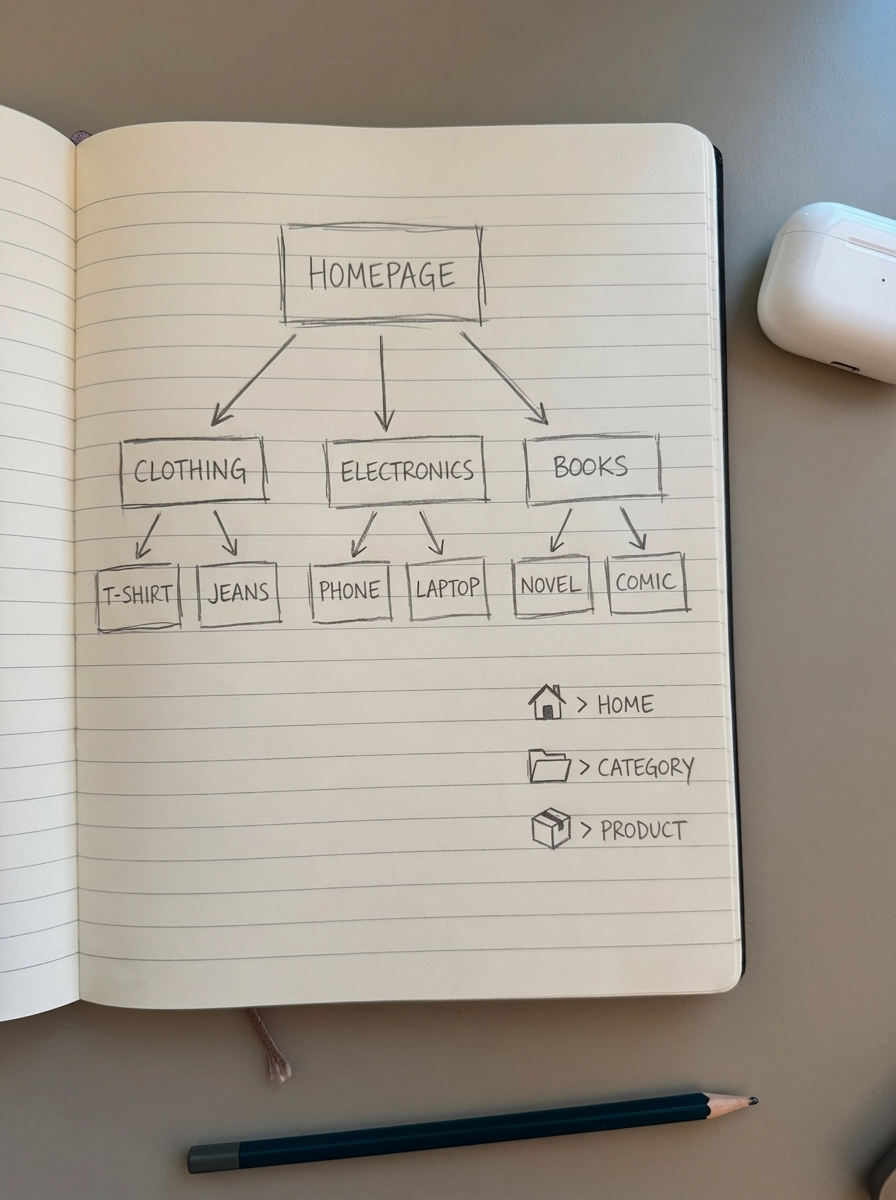 HOMEPAGE
CLOTHING ELECTRONICS BOOKS
T-SHIRT JEANS PHONE LAPTOP NOVEL COMIC
> HOME
> CATEGORY
> PRODUCT